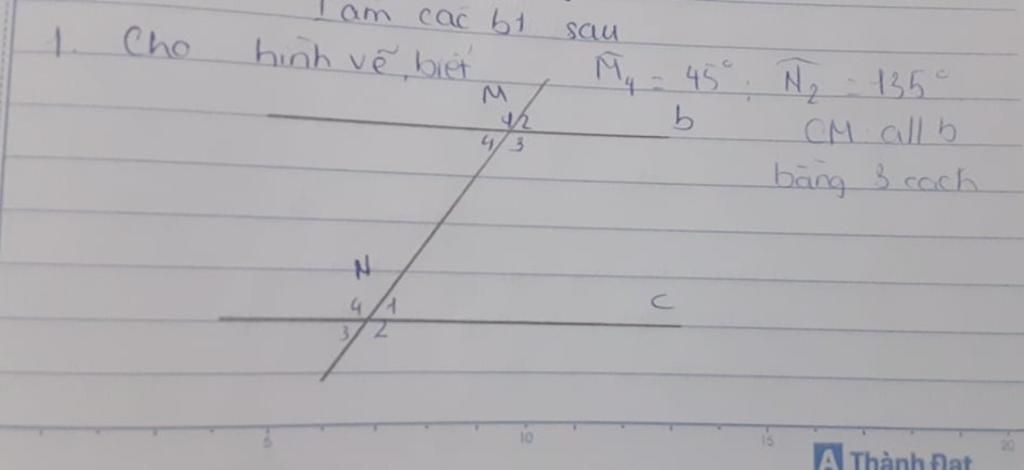 Làm các bt sau
1. Cho hình vẽ, biết M̂₄ = 45° ; N̂₂ = 135°
M b CM a//b
1 2
4 3 bằng 3 cách
N
4 1 c
3 2
5 10 15 20
A Thành Đạt